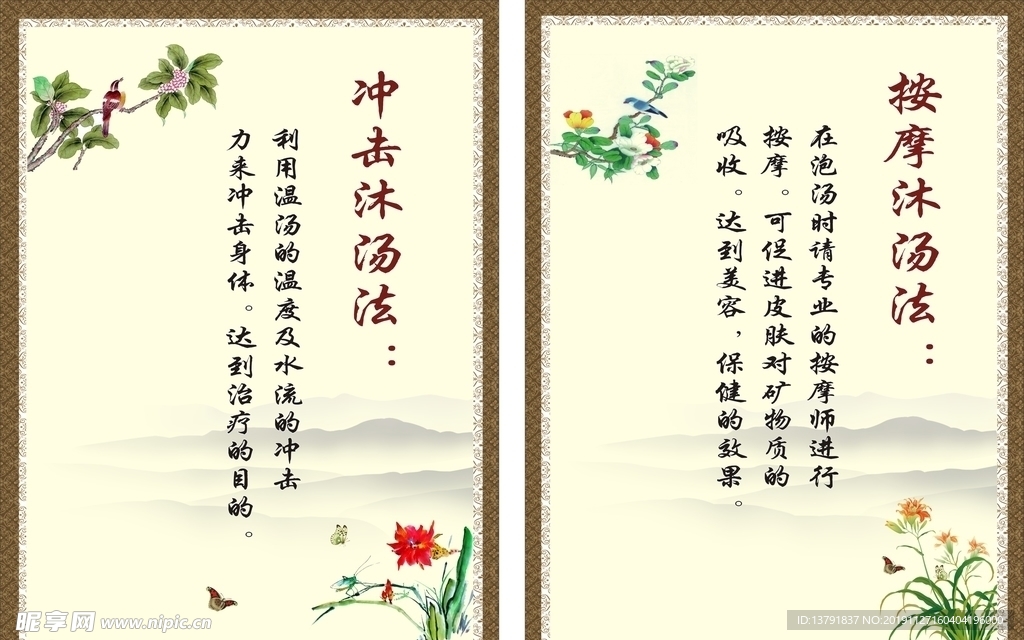 冲击沐汤法：
利用温汤的温度及水流的冲击
力来冲击身体。达到治疗的目的。
按摩沐汤法：
在泡汤时请专业的按摩师进行
按摩。可促进皮肤对矿物质的
吸收。达到美容，保健的效果。
昵享网 www.nipic.cn
ID:13791837 NO:20191127160404196000